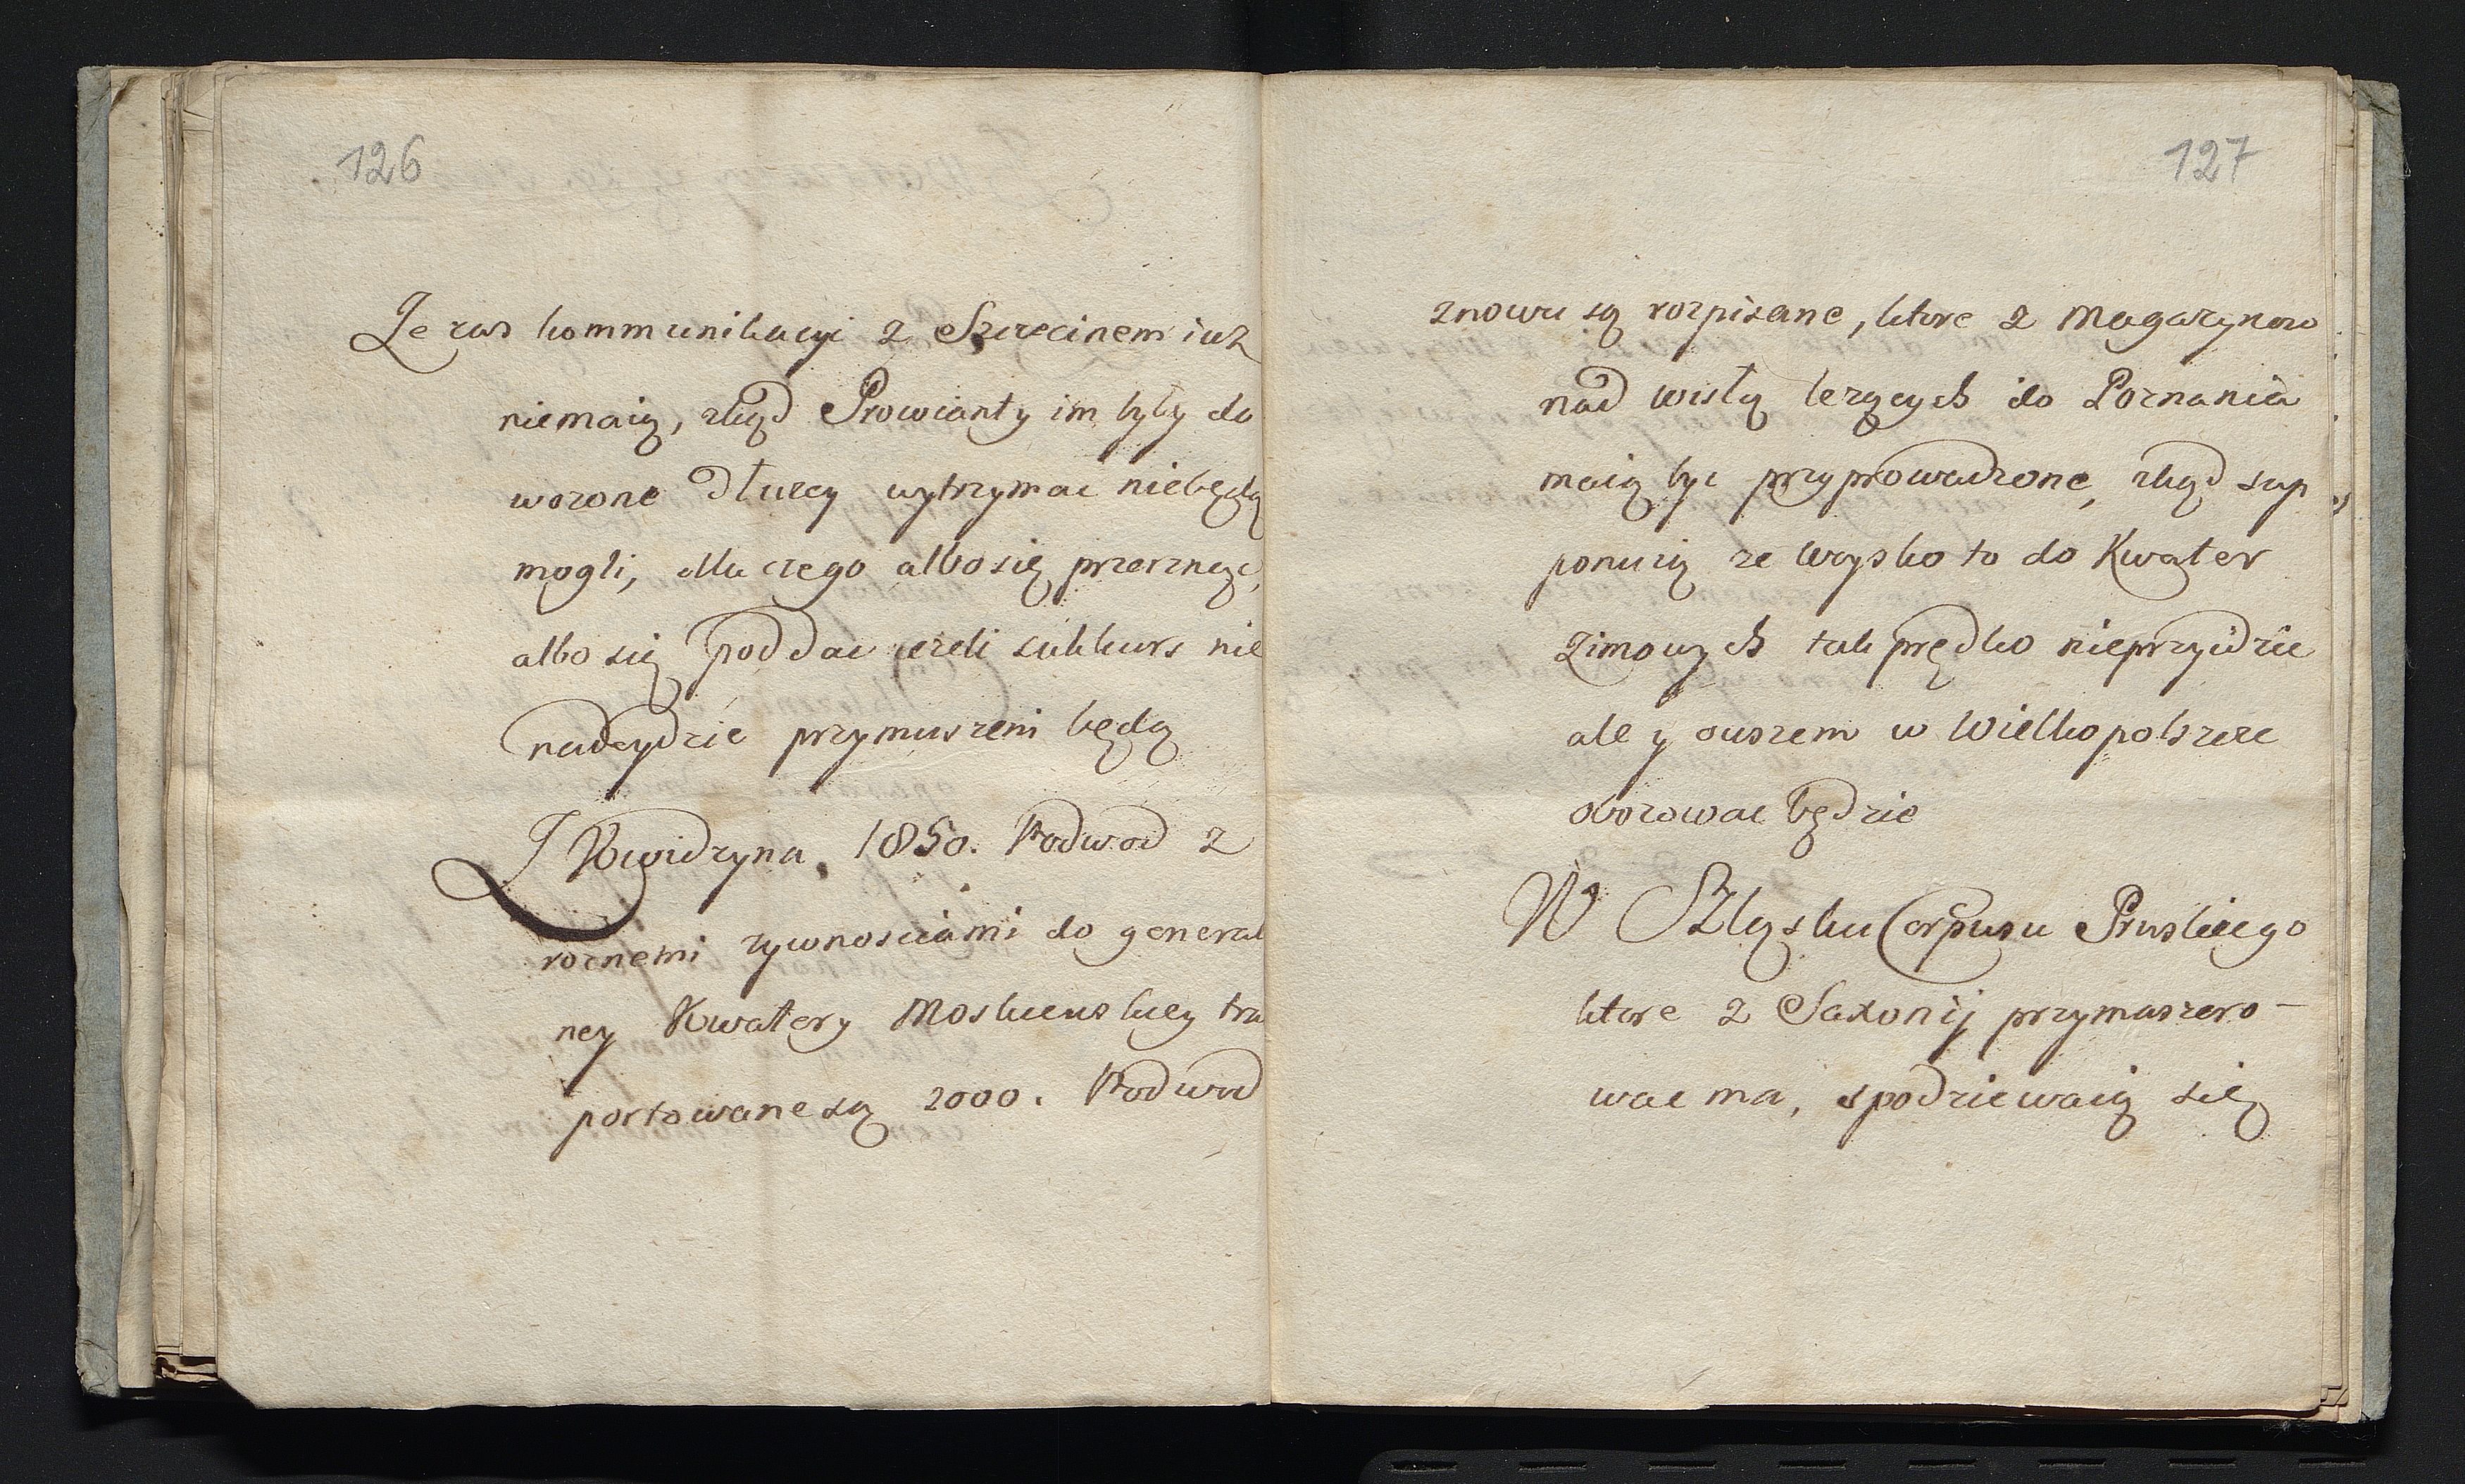 126
Ze zas kommunikacyi z Szczecinem iuz
niemaią, zkąd Prowianty im były do
wozone dłuzey wytrzymac niebędą
mogli, dla czego albo się przerznąc,
albo się poddac iezeli sukkurs nie
nadeydzie przymuszeni będą
Z Kwidzyna, 1850. Podwod z
roznemi zywnosciami do general
ney Kwatery Moskiewskiey tra
portowane są 2000. Podwod
127
znowu są rozpisane, ktore z Magazynow
nad wisłą lezących do Poznania
maią byc przyprowadzone, zkąd sup
ponuią ze woysko to do Kwater
zimowych tak prędko nieprzyidzie
ale y owszem w Wielkopolszcze
obozowac będzie
W Szląsku Corpusu Pruskiego
ktore z Saxonij przymaszero-
wac ma, spodziewaią się